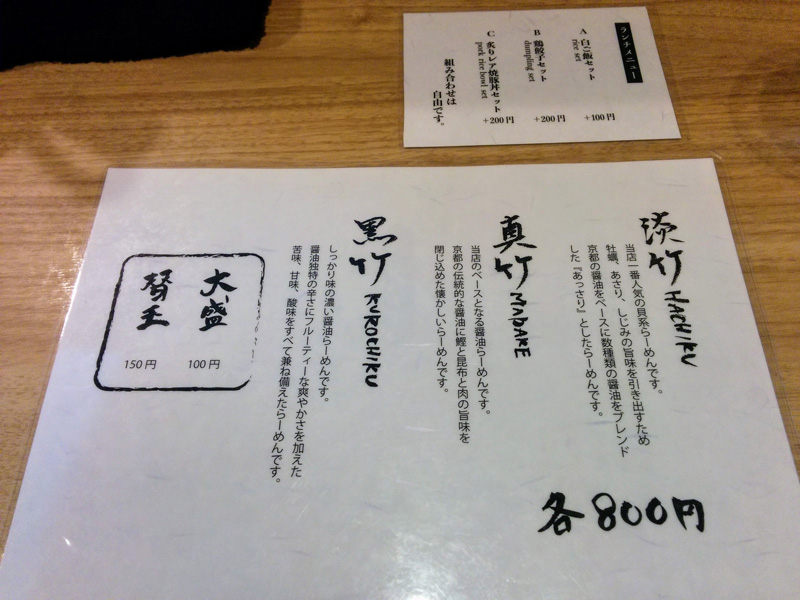 ランチメニュー
A 白ご飯セット
rice set
+100円
B 鶏餃子セット
dumpling set
+200円
C 炙りレア焼豚丼セット
pork rice bowl set
+200円
組み合わせは
自由です。
淡竹 HACHIKU
当店一番人気の貝系らーめんです。
牡蠣、あさり、しじみの旨味を引き出すため
京都の醤油をベースに数種類の醤油をブレンド
した『あっさり』としたらーめんです。
真竹 MADAKE
当店のベースとなる醤油らーめんです。
京都の伝統的な醤油に鰹と昆布と肉の旨味を
閉じ込めた懐かしいらーめんです。
黒竹 KUROCHIKU
しっかり味の濃い醤油らーめんです。
醤油独特の辛さにフルーティーな爽やかさを加えた
苦味、甘味、酸味をすべて兼ね備えたらーめんです。
大盛
100円
替玉
150円
各800円